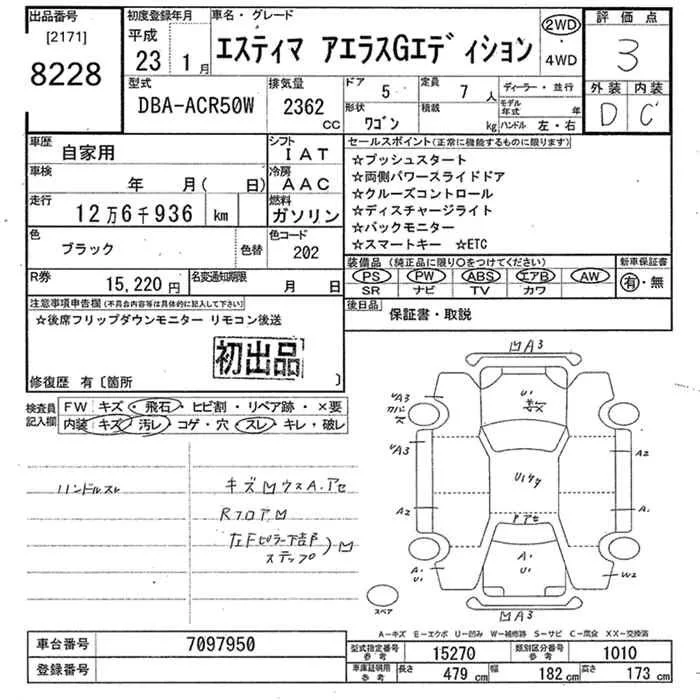 出品番号
[2171]
8228
初度登録年月
平成
23 1月
車名・グレード
エスティマ アエラスGエディション
2WD
・
4WD
評価点
3
外装 内装
D C
型式
DBA-ACR50W
排気量
2362 CC
ドア 5
定員 7 人
形状 ワゴン
積載 kg
ディーラー・並行
モデル年式 年
ハンドル 左・右
車歴 自家用
シフト IAT
車検 年 月( 日)
冷房 AAC
走行 12万6千936 km
燃料 ガソリン
色 ブラック 色替
色コード 202
R券 15,220円
名変通知期限 月 日
セールスポイント(正常に機能するものに限ります)
☆プッシュスタート
☆両側パワースライドドア
☆クルーズコントロール
☆ディスチャージライト
☆バックモニター
☆スマートキー ☆ETC
装備品(純正品に限り○をつけてください)
PS PW ABS エアB AW
SR ナビ TV カワ
新車保証書
有・無
後日品 保証書・取説
注意事項申告欄(不具合内容等は具体的に記入して下さい)
☆後席フリップダウンモニター リモコン後送
初出品
修復歴 有〔箇所 〕
検査員記入欄
FW キズ・飛石・ヒビ割・リペア跡・×要
内装 キズ 汚レ・コゲ・穴・スレ・キレ・破レ
ハンドルスレ
キズ M ウスA.アセ
RフロアM
左Fピラー下部
ステップ )M
MA3
UA3
カバース
U1
UA3
A2
U1サク
A2
A.
Pアセ
A.
U1
A.
U1
W2
MA3
スペア
A-キズ E-エクボ U-凹み W-補修跡 S-サビ C-腐食 XX-交換済
車台番号 7097950
登録番号
型式指定番号参考 15270
類別区分番号参考 1010
車庫証明用参考 長さ 479 cm 幅 182 cm 高さ 173 cm